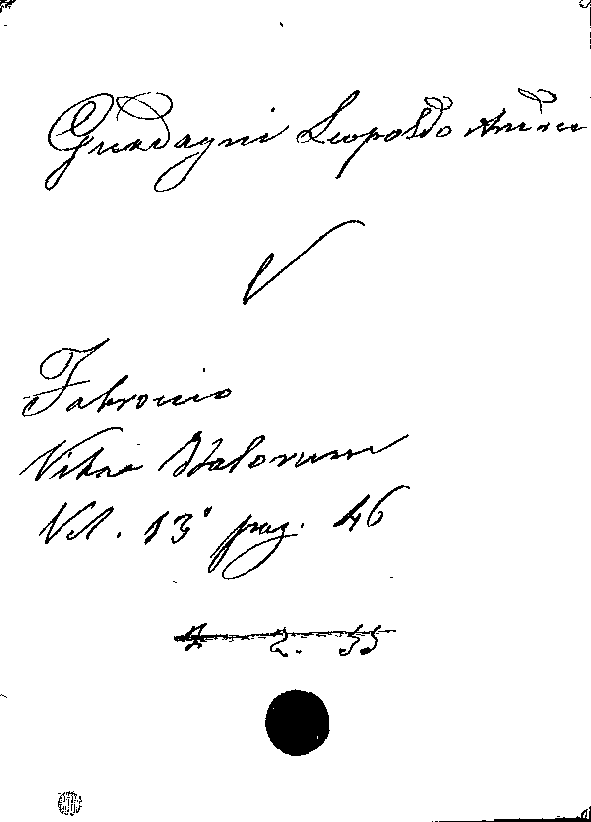 Guadagni Leopoldo Andrea
V
Fabronio
Vitae Italorum
Vol. 13° pag. 46
2. 55